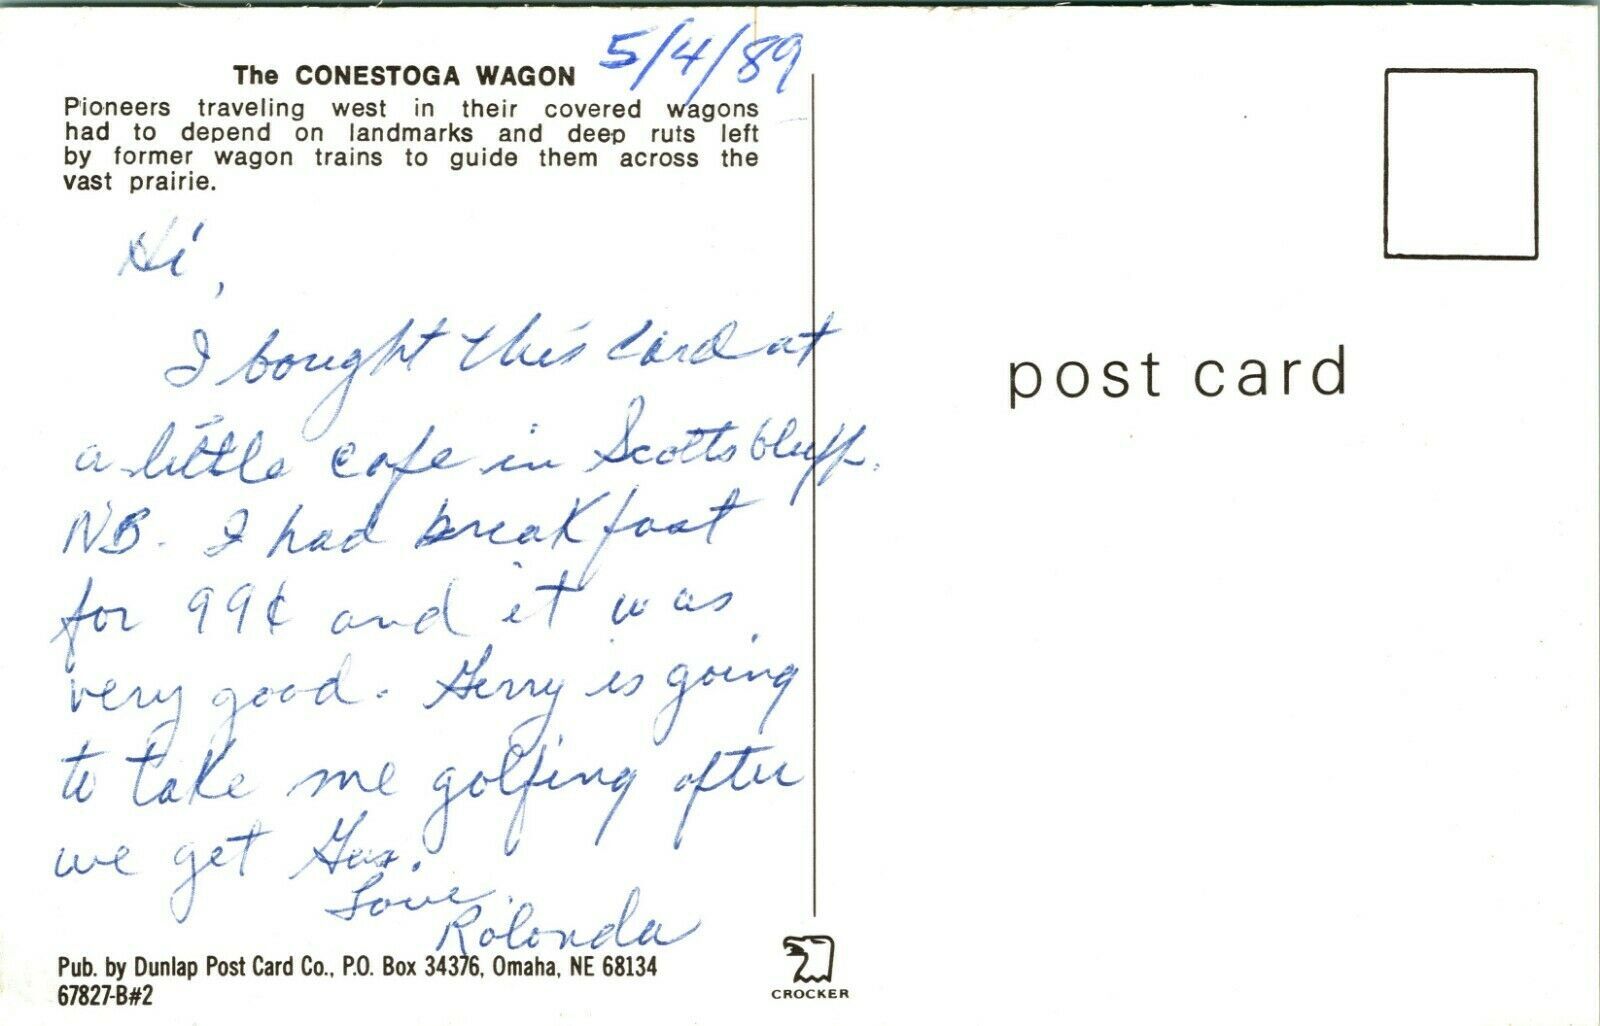 5/4/89
The CONESTOGA WAGON
Pioneers traveling west in their covered wagons
had to depend on landmarks and deep ruts left
by former wagon trains to guide them across the
vast prairie.
Hi,
I bought this card at
a little cafe in Scottsbluff,
NB. I had breakfast
for 99¢ and it was
very good. Gerry is going
to take me golfing after
we get Gus.
Love,
Rolonda
Pub. by Dunlap Post Card Co., P.O. Box 34376, Omaha, NE 68134
67827-B#2
CROCKER
post card